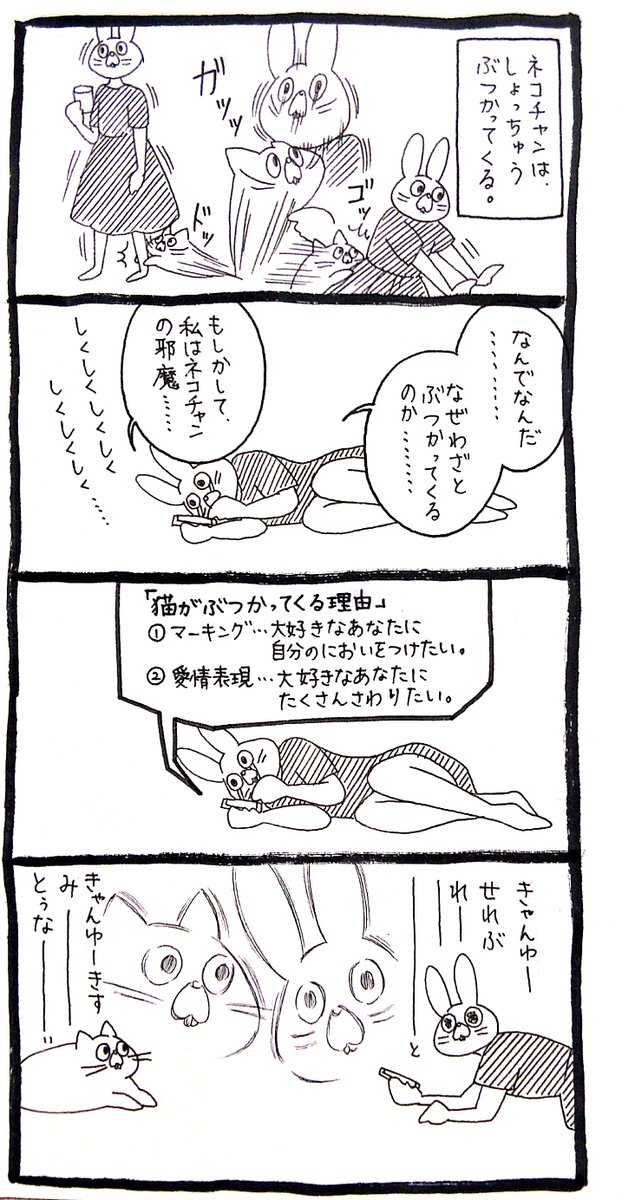 ネコチャンは、
しょっちゅう
ぶつかってくる。
ゴッ
ガッッ
ドッ
なんでなんだ
………
なぜわざと
ぶつかってくる
のか………
もしかして、
私はネコチャン
の邪魔……
しくしくしくしく
しくしくしく……
「猫がぶつかってくる理由」
①マーキング…大好きなあなたに
自分のにおいをつけたい。
②愛情表現…大好きなあなたに
たくさんさわりたい。
きゃんゆー
せれぶ
れー
ーーと
きゃんゆーきす
みーー
とぅなーー"